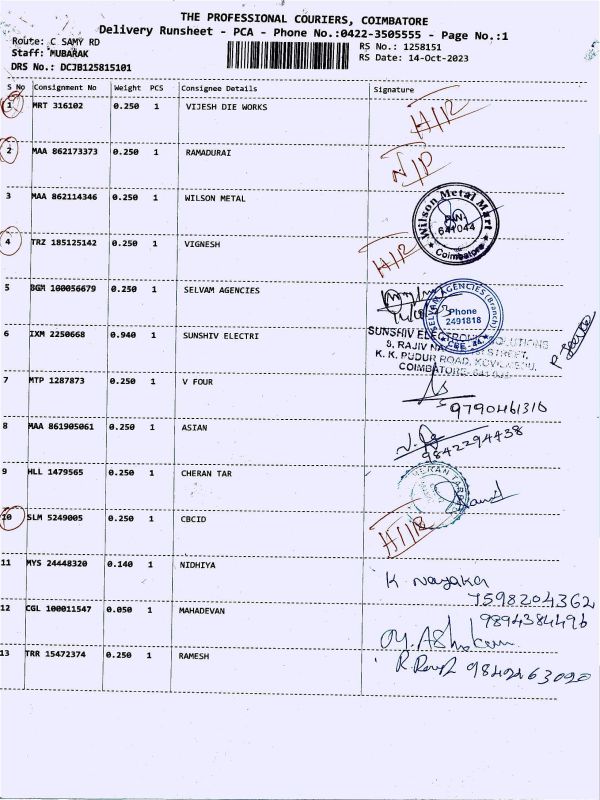 THE PROFESSIONAL COURIERS, COIMBATORE
Delivery Runsheet - PCA - Phone No.:0422-3505555 - Page No.:1
Route: C SAMY RD
RS No.: 1258151
Staff: MUBARAK
RS Date: 14-Oct-2023
DRS No.: DCJB125815101
S No Consignment No Weight PCS Consignee Details Signature
1 MRT 316102 0.250 1 VIJESH DIE WORKS
2 MAA 862173373 0.250 1 RAMADURAI
3 MAA 862114346 0.250 1 WILSON METAL
Wilson Metal Mart
PIN-
641044
Coimbatore
4 TRZ 185125142 0.250 1 VIGNESH
5 BGM 100056679 0.250 1 SELVAM AGENCIES
SELVAM AGENCIES (Branch)
Phone
2491818
CBE
6 IXM 2250668 0.940 1 SUNSHIV ELECTRI
SUNSHIV SOLUTIONS
8, RAJIV STREET,
K. K. PUDUR ROAD,
COIMBATORE
7 MTP 1287873 0.250 1 V FOUR
9790461310
8 MAA 861905061 0.250 1 ASIAN
9842294438
9 HLL 1479565 0.250 1 CHERAN TAR
10 SLM 5249005 0.250 1 CBCID
11 MYS 24448320 0.140 1 NIDHIYA
K
7598204362
12 CGL 100011547 0.050 1 MAHADEVAN
9894384496
13 TRR 15472374 0.250 1 RAMESH